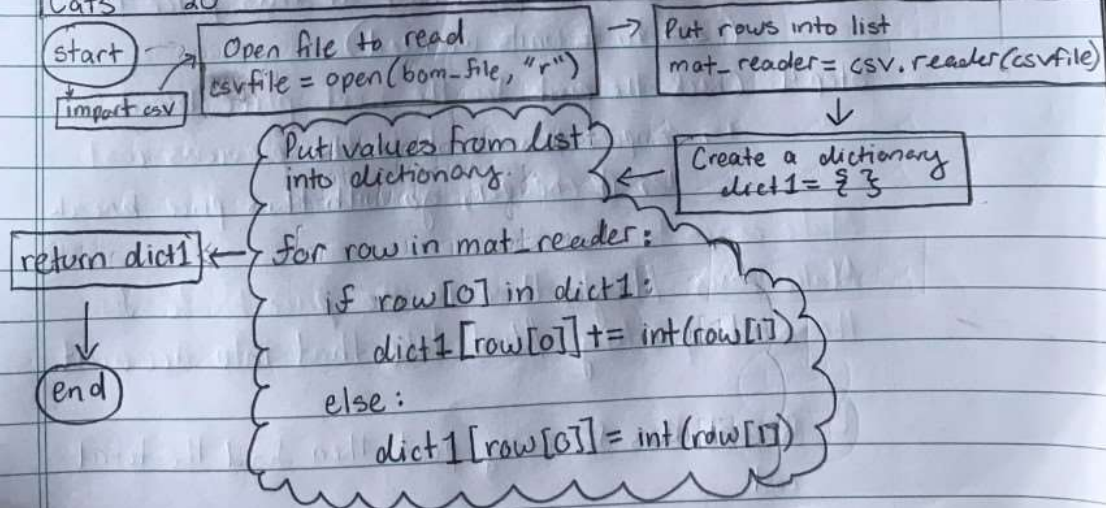 Cats 20
start
import csv
Open file to read
csvfile = open(bom_file, "r")
Put rows into list
mat_reader = csv.reader(csvfile)
Create a dictionary
dict1 = { }
Put values from list
into dictionary.
for row in mat_reader:
if row[0] in dict1:
dict1[row[0]] += int(row[1])
else:
dict1[row[0]] = int(row[1])
return dict1
end